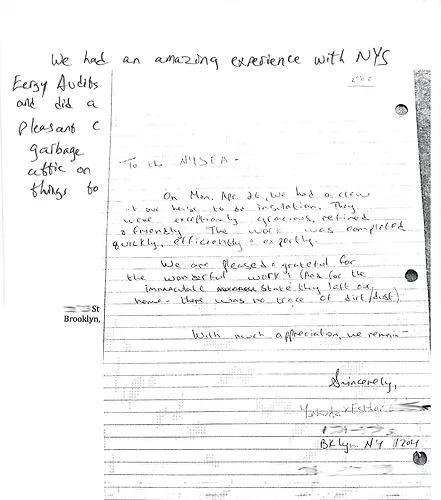 We had an amazing experience with NYS
Eergy Audits
and did a
pleasant c
garbage
attic on
things to
St
Brooklyn,
To the NYSEA -
On Mon, Apr. 26, we had a crew
at our house to do insulation. They
were exceptionally gracious, refined
& friendly. The work was completed
quickly, efficiently & expertly.
We are pleased & grateful for
the wonderful work! (And for the
immaculate state they left our
home - there was no trace of dirt/dust)
With much appreciation, we remain -
Sincerely,
Bklyn. NY 11204